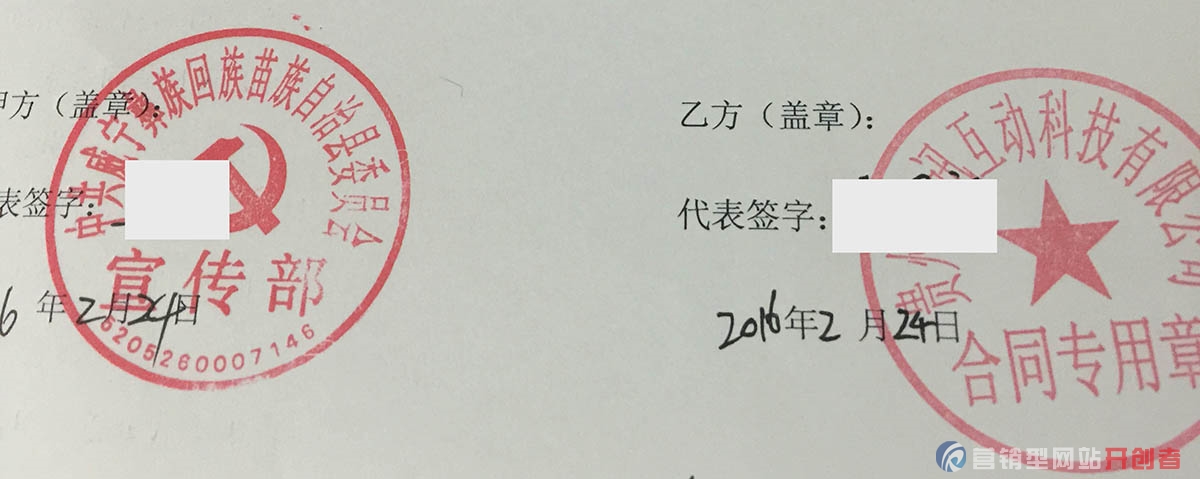 甲方（盖章）：
代表签字：
6年2月24日
中共威宁彝族回族苗族自治县委员会
宣传部
5205260007146
乙方（盖章）：
代表签字：
2016年2月24日
贵讯互动科技有限公司
合同专用章
营销型网站开创者